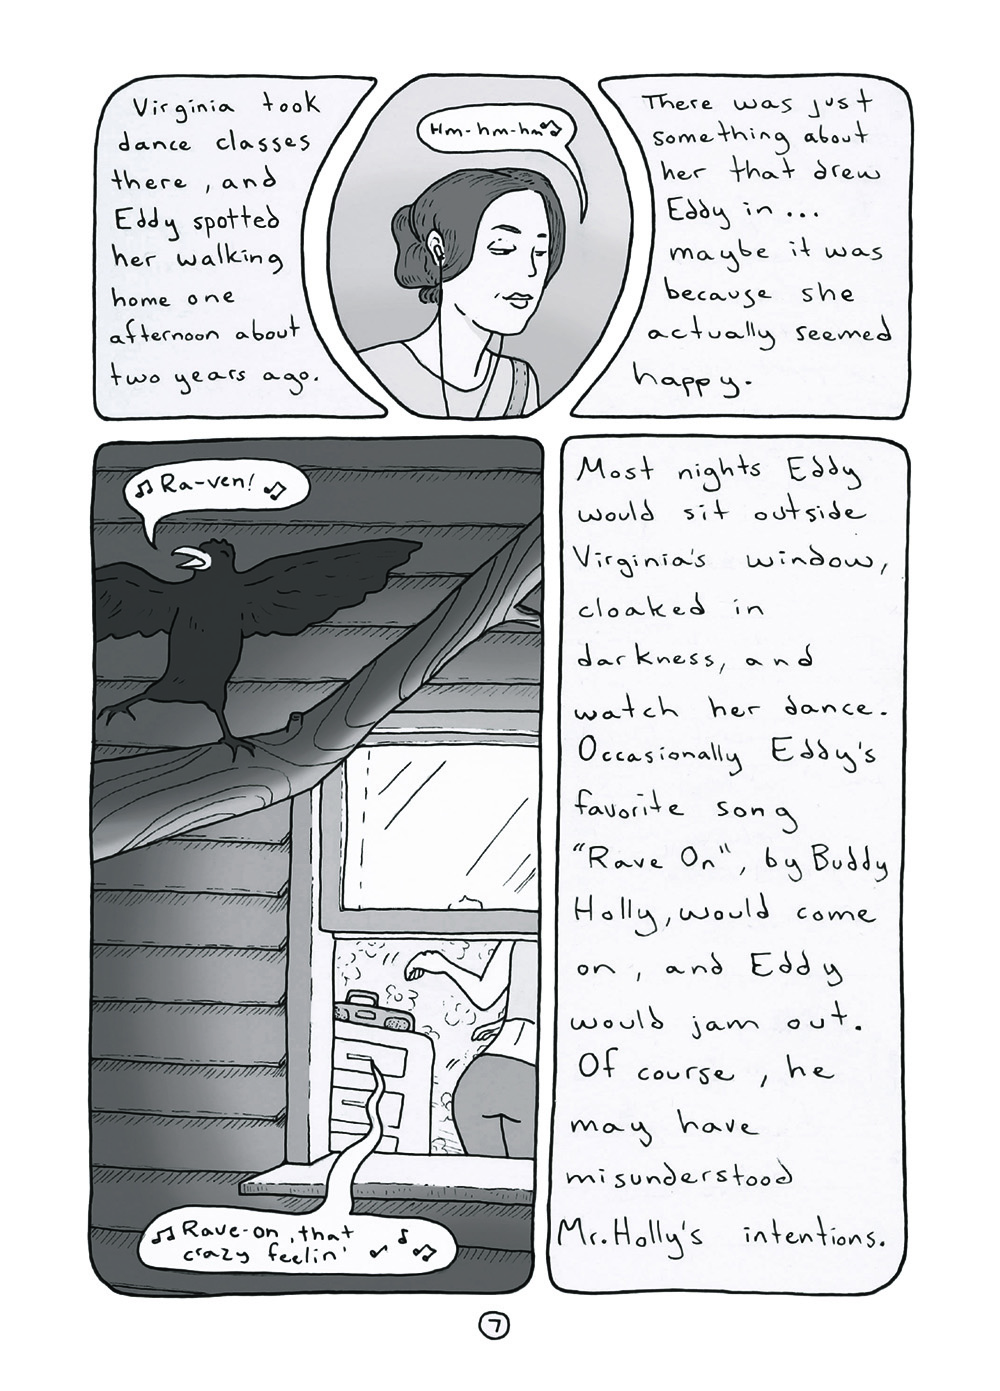 Virginia took
dance classes
there, and
Eddy spotted
her walking
home one
afternoon about
two years ago.
Hm-hm-hm
There was just
something about
her that drew
Eddy in...
maybe it was
because she
actually seemed
happy.
Ra-ven!
Rave-on, that
crazy feelin'
Most nights Eddy
would sit outside
Virginia's window,
cloaked in
darkness, and
watch her dance.
Occasionally Eddy's
favorite song
"Rave On", by Buddy
Holly, would come
on, and Eddy
would jam out.
Of course, he
may have
misunderstood
Mr. Holly's intentions.
7